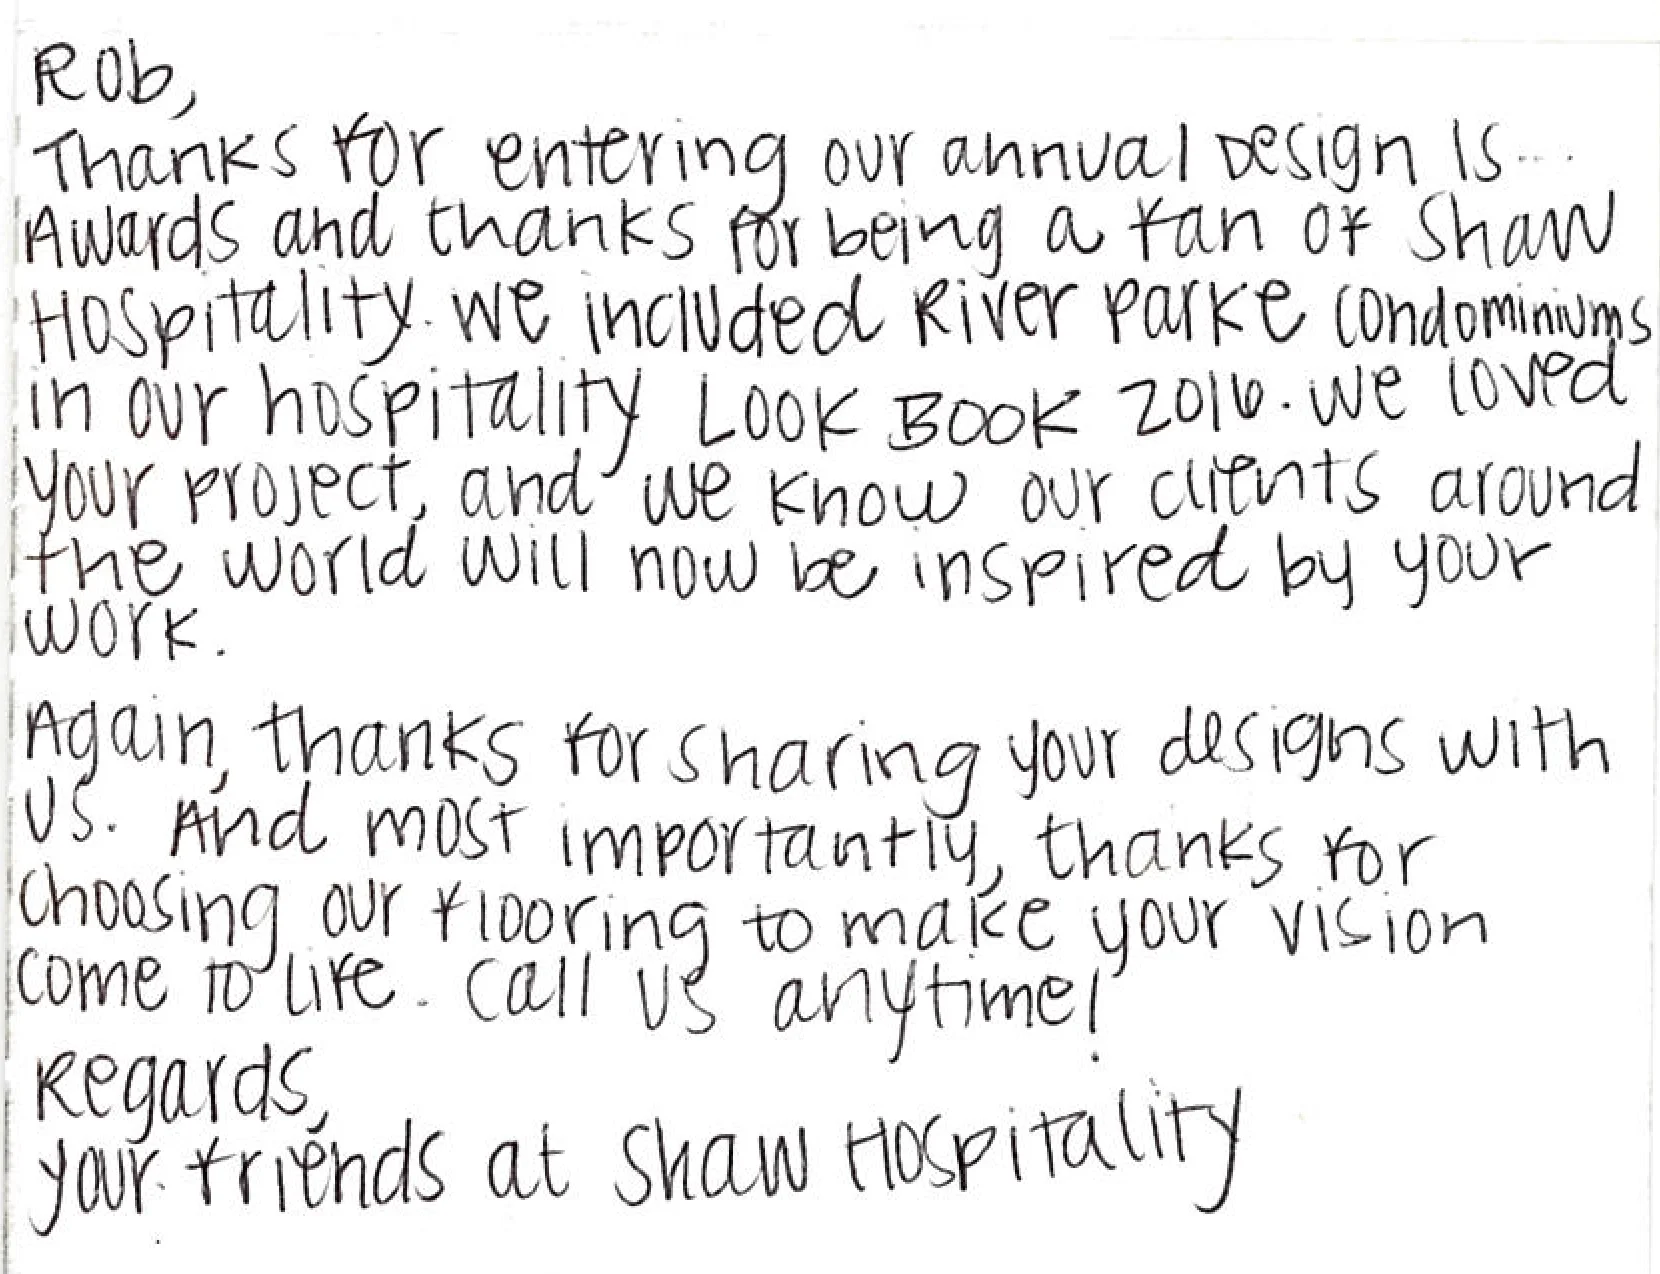 Rob,
Thanks for entering our annual Design Is...
Awards and thanks for being a fan of Shaw
Hospitality. We included River Parke Condominiums
in our hospitality Look Book 2016. We loved
your project, and we know our clients around
the world will now be inspired by your
work.
Again, thanks for sharing your designs with
us. And most importantly, thanks for
choosing our flooring to make your vision
come to life. Call us anytime!
Regards,
your friends at Shaw Hospitality